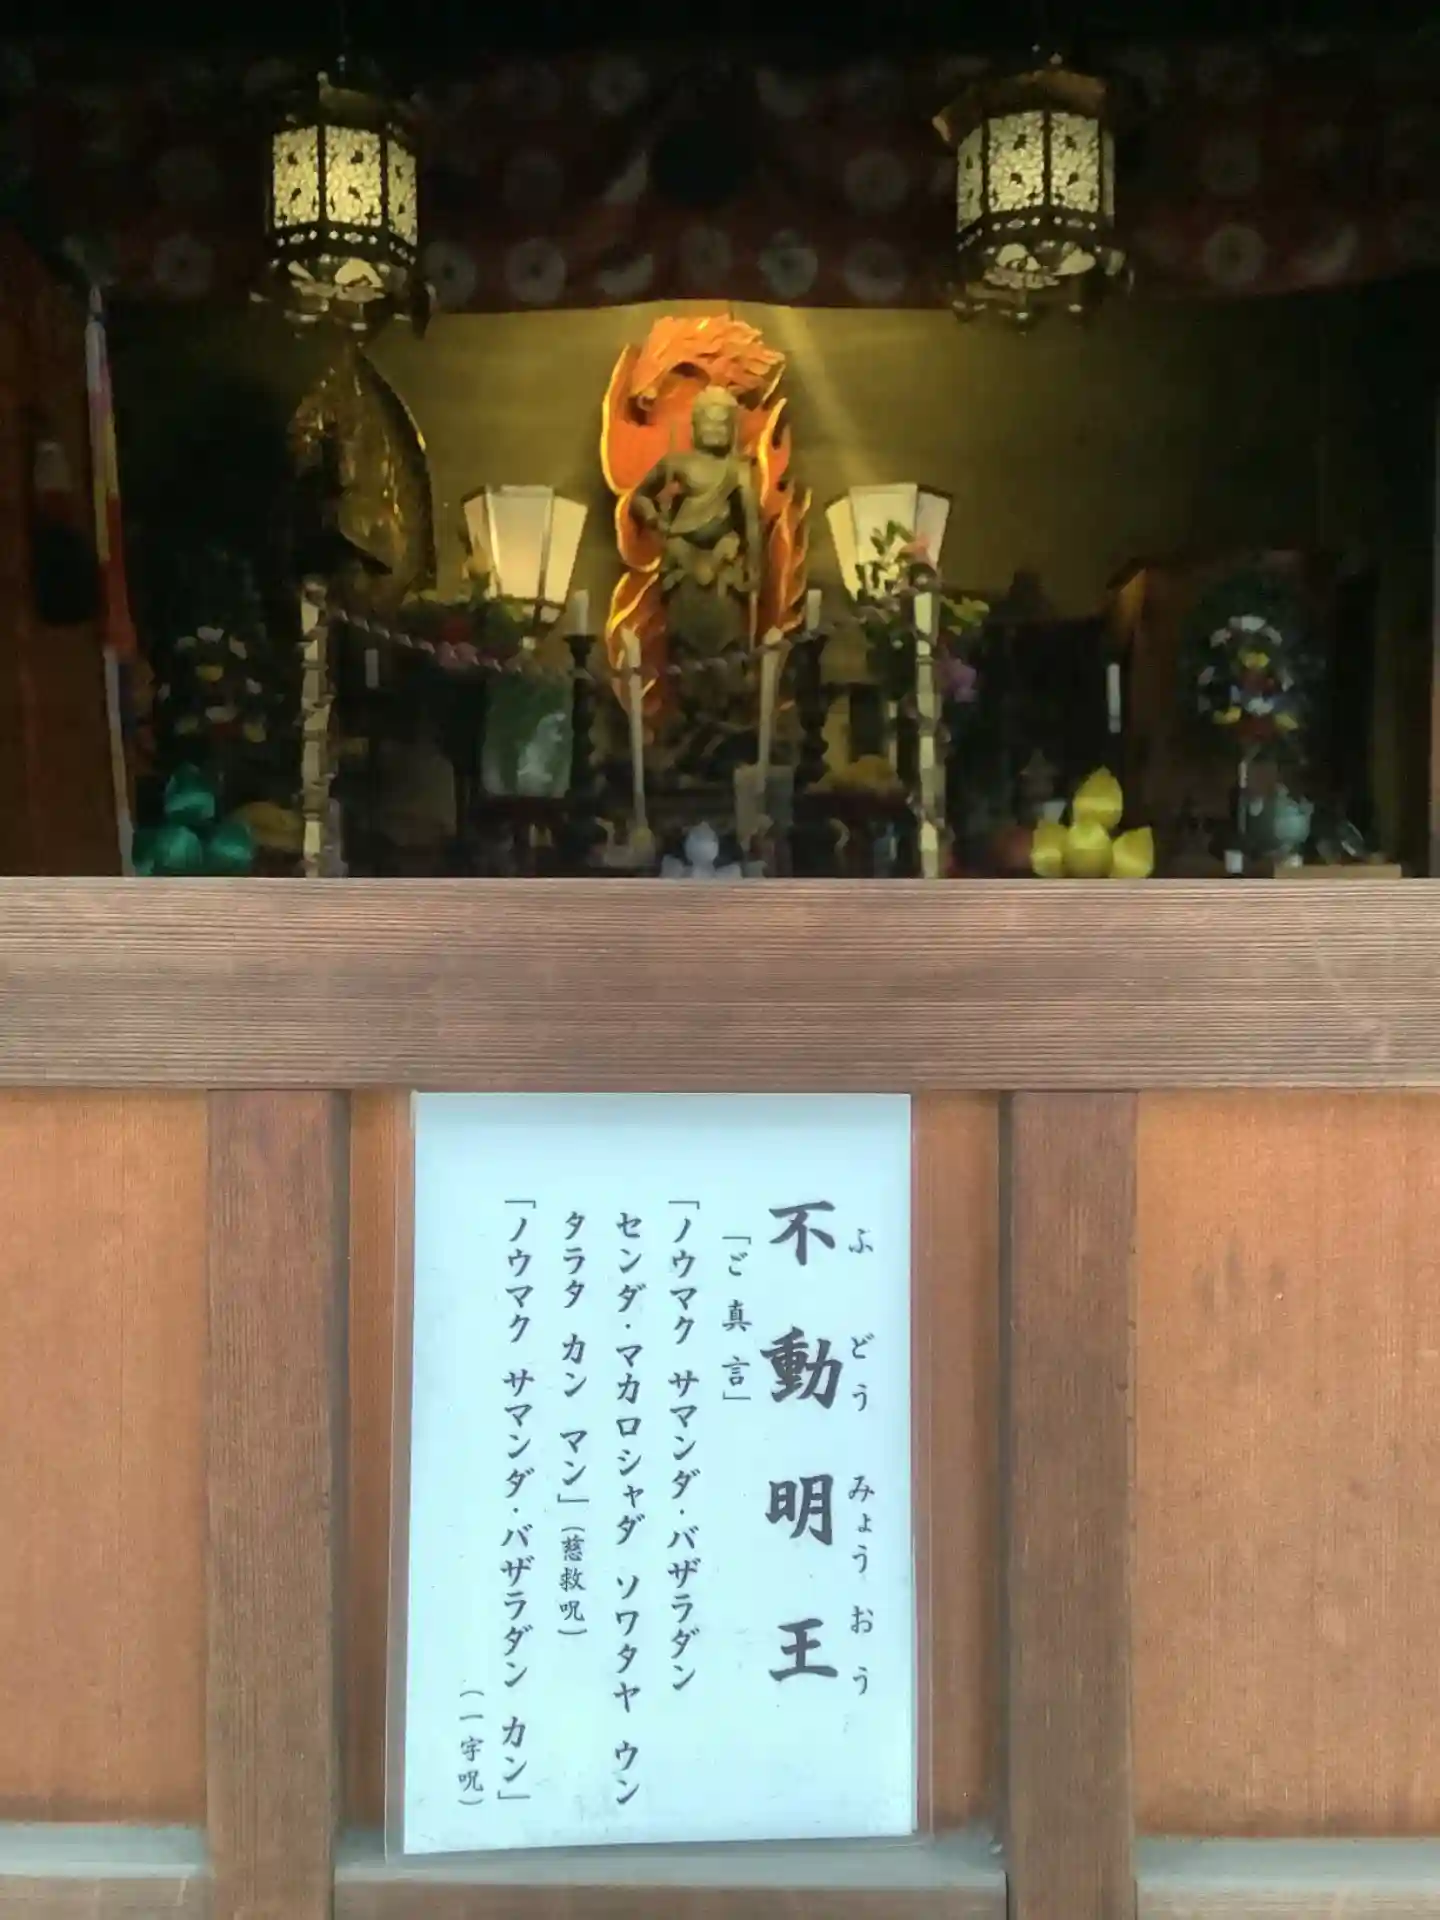 不動明王
ふどうみょうおう
「ご真言」
「ノウマク サマンダ・バザラダン
センダ・マカロシャダ ソワタヤ ウン
タラタ カン マン」(慈救呪)
「ノウマク サマンダ・バザラダン カン」
(一字呪)